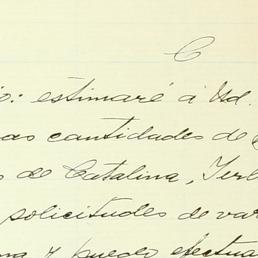 C
o: estimaré á Ud.
as cantidades de
s de Catalina,
solicitudes de var
y puedo efectua